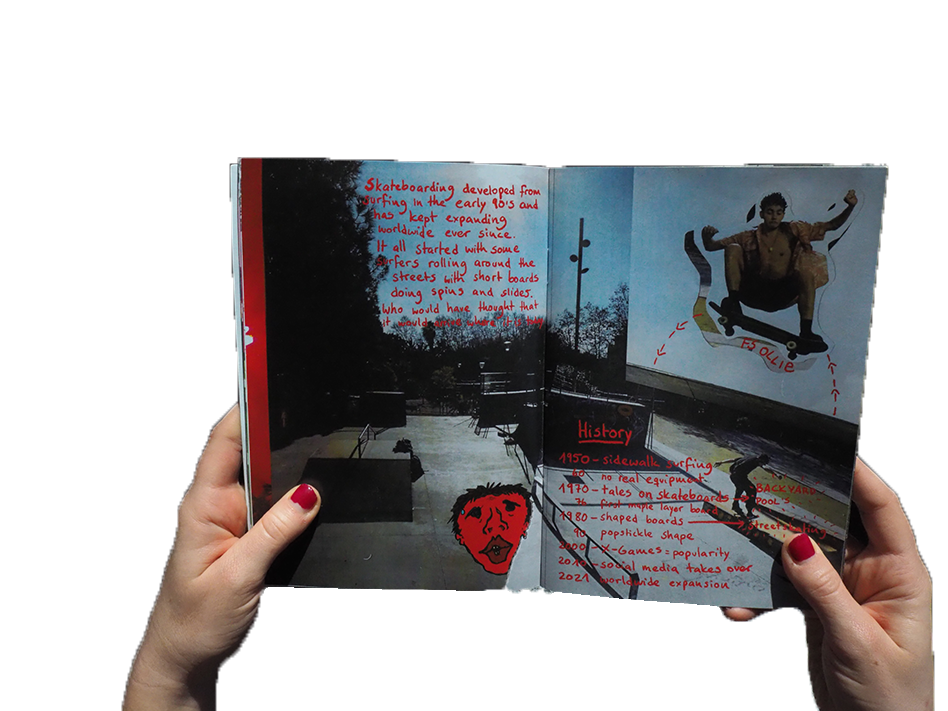 Skateboarding developed from
surfing in the early 90's and
has kept expanding
worldwide ever since.
It all started with some
surfers rolling around the
streets with short boards
doing spins and slides.
Who would have thought that
it would where it is
FS OLLIE
History
1950 - sidewalk surfing
no real equipment
1970 - tales on skateboards → BACKYARD
POOL'S
76 first maple layer board
1980 - shaped boards → streetskating
90 popstickle shape
2000 - X-Games = popularity
2010 - social media takes over
2021 worldwide expansion